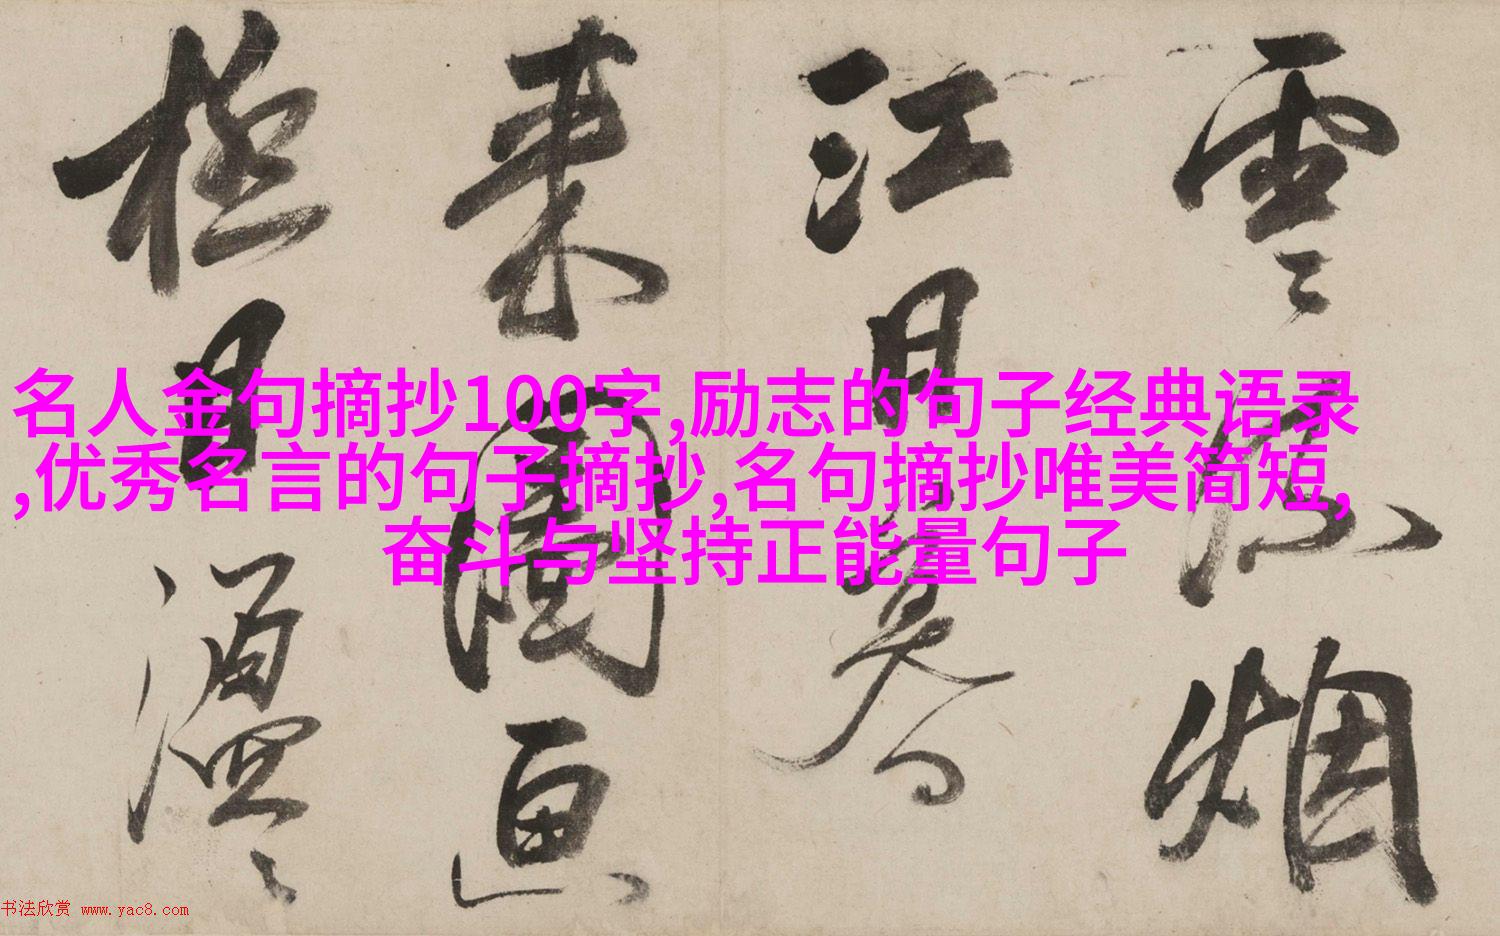 名人金句摘抄100字,励志的句子经典语录
,优秀名言的句子摘抄,名句摘抄唯美简短,
奋斗与坚持正能量句子
雲烟
江
来圖画
極目
书法欣赏 www.yac8.com